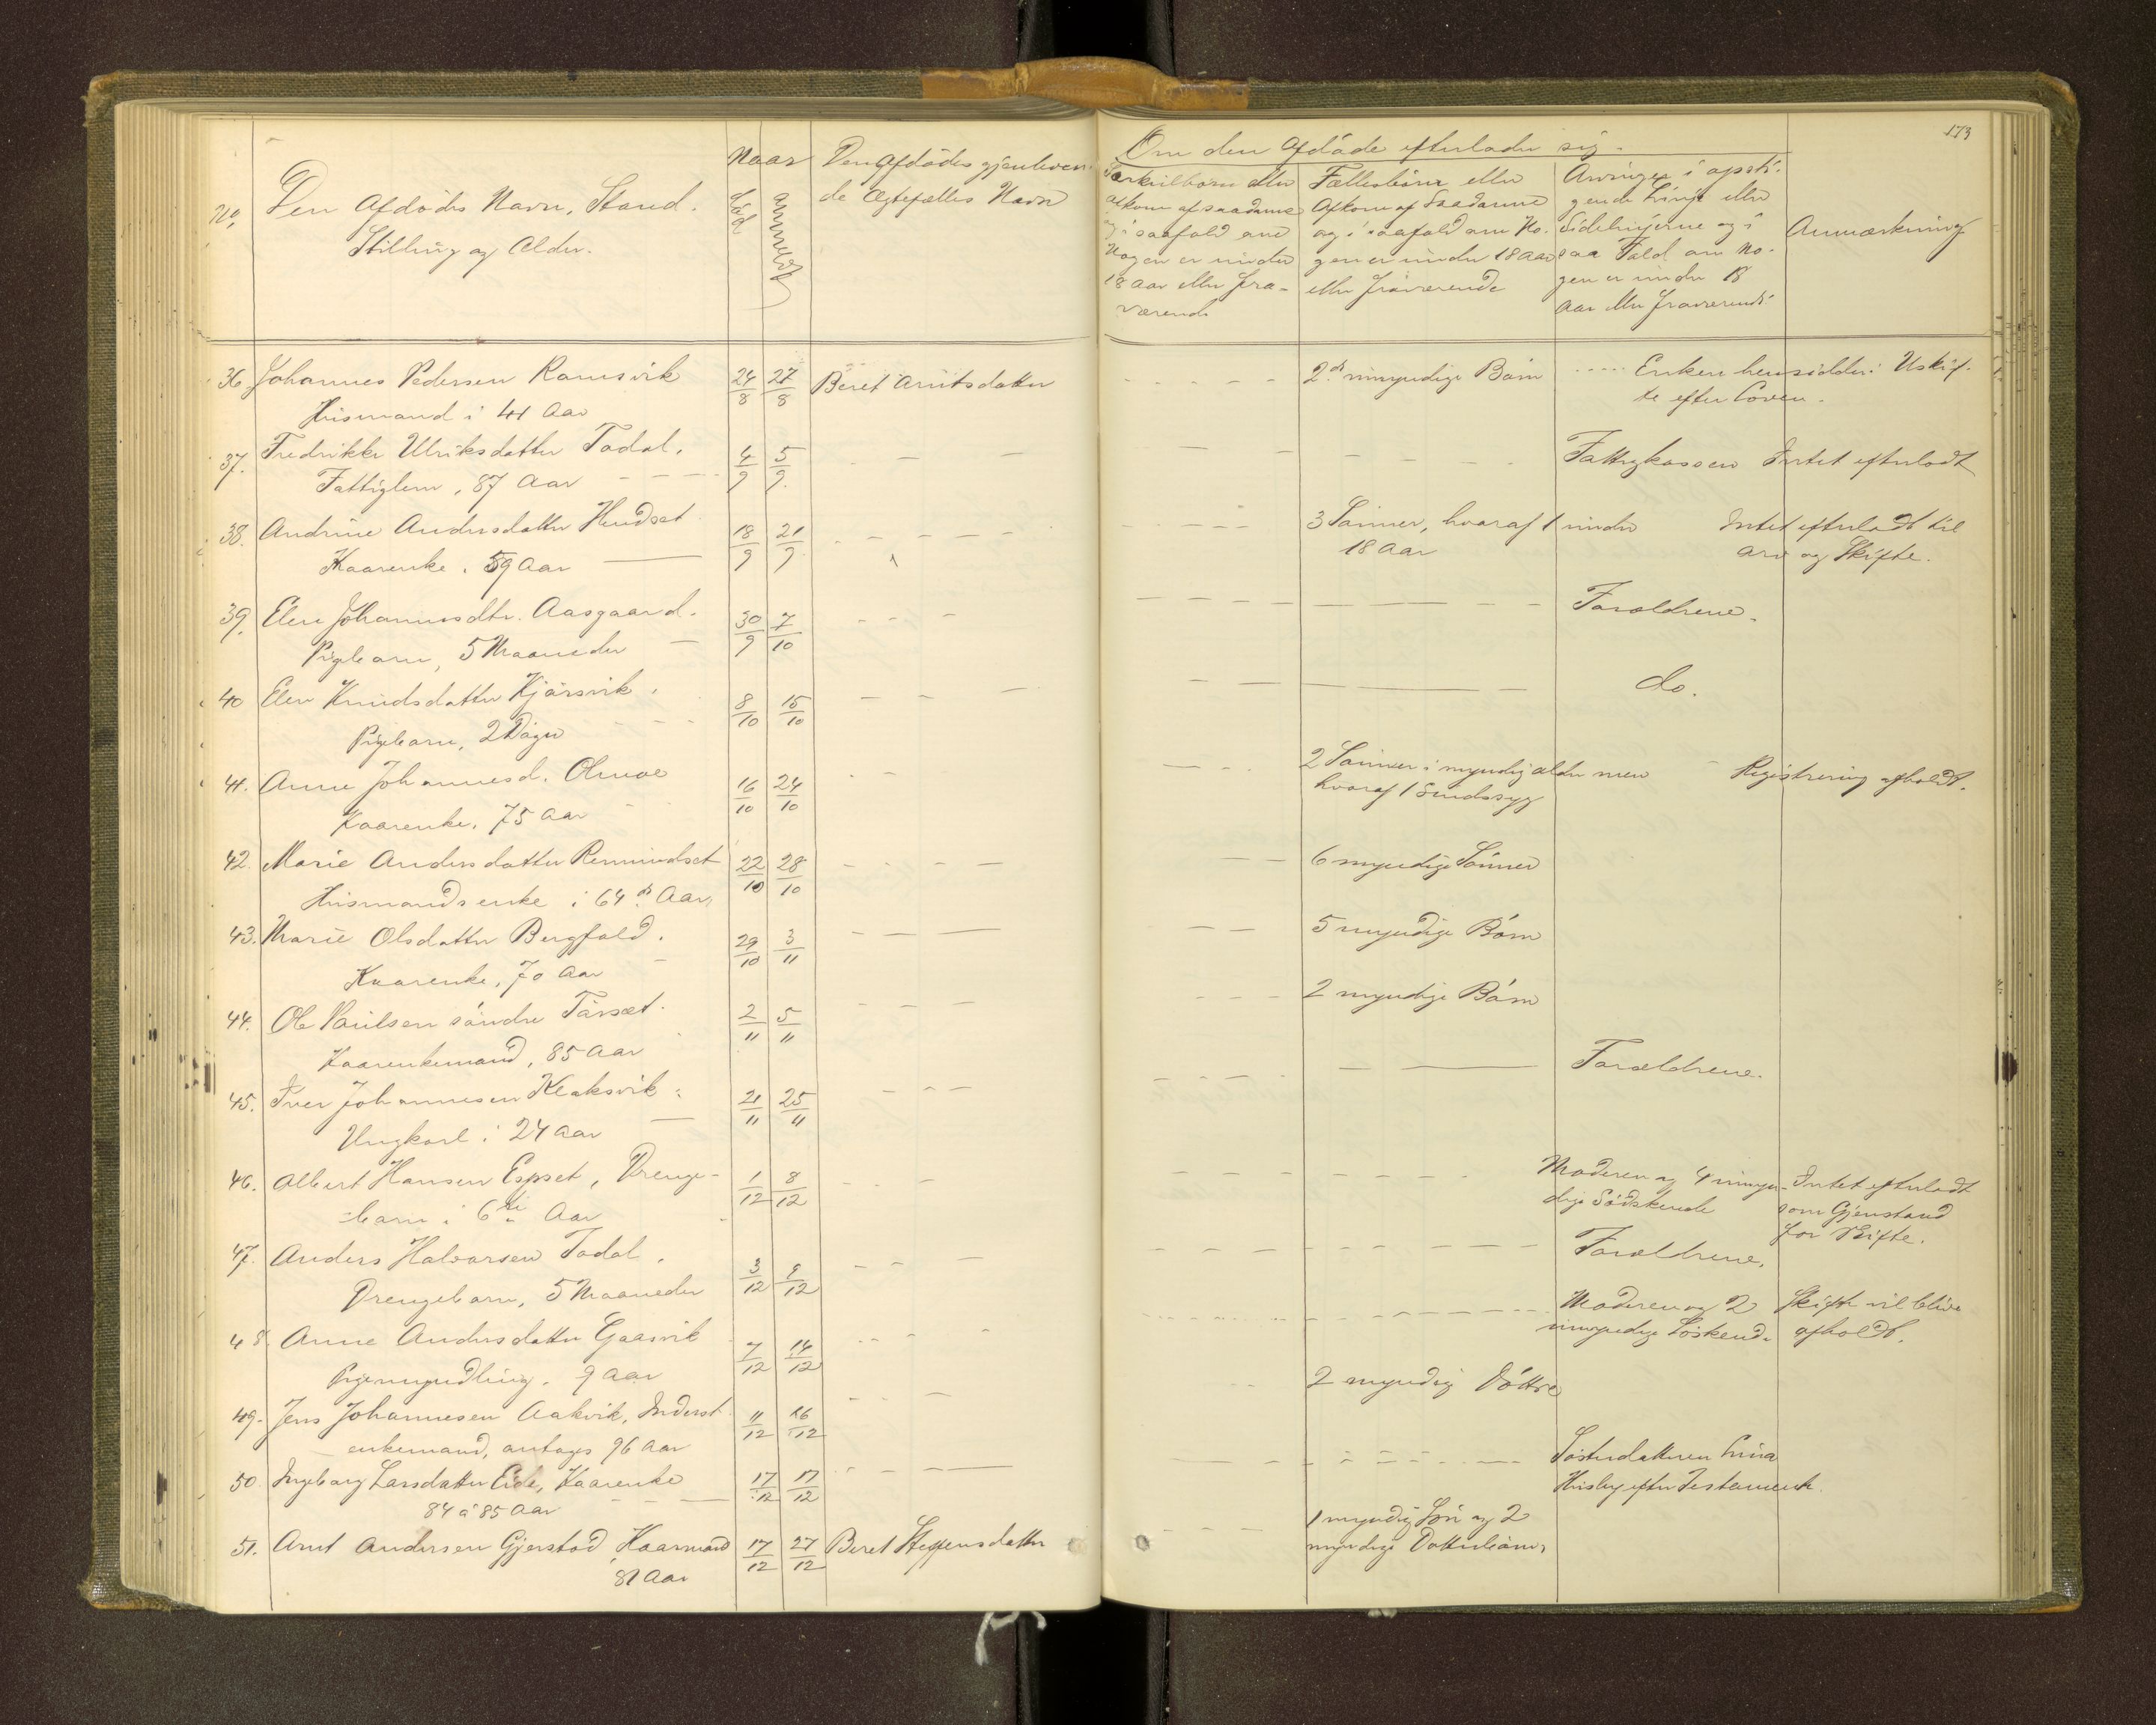 173
No.
Den Afdødes Navn, Stand.
Stilling og Alder.
Naar
død
anmeldt
Den Afdødes gjenleven-
de Ægtefælles Navn
Om den Afdøde efterlader sig.
Særkulbørn eller
Afkom af saadanne
og i saafald om
Nogen er under
18 Aar eller fra-
værende
Fællesbørn eller
Afkom af Saadanne
og i saafald om No-
gen er under 18 Aar
eller fraværende
Arvinger i opsti-
gende Linje eller
Sidelinjerne og i
saa Fald om No-
gen er under 18
Aar eller fraværende
Anmærkning
36. Johannes Pedersen Ramsvik 24/8 27/8 Beret Arntsdatter - - - - - 2de umyndige Børn - - - - Enken hensidder i Uskif-
Husmand i 41 Aar te efter Loven.
37. Fredrikke Ulriksdatter Todal. 4/9 5/9 Fattigkassen Intet efterladt
Fattiglem, 87 Aar
38. Andrine Andersdatter Hendset 18/9 21/9 3 Sønner, hvoraf 1 under Intet efterladt til
Kaarenke. 59 Aar 18 Aar Arv og Skifte.
39. Elen Johannesdtr. Aasgaard. 30/9 7/10 Forældrene.
Pigebarn, 5 Maaneder
40 Elen Knudsdatter Kjørsvik. 8/10 15/10 do.
Pigebarn, 2 Dage
41. Anne Johannesd. Olmoe 16/10 24/10 2 Sønner i myndig alder men Registrering afholdt.
Kaarenke, 75 Aar hvoraf 1 Sindssyg
42. Marie Andersdatter Remmindset 22/10 28/10 6 myndige Sønner
Husmandsenke i 64de Aar,
43. Marie Olsdatter Bergfald. 29/10 3/11 5 myndige Børn
Kaarenke, 70 Aar
44. Ole Paulsen søndre Tørset. 2/11 5/11 2 myndige Børn
Kaarenkemand, 85 Aar
45. Iver Johannesen Kleksvik. 21/11 25/11 Forældrene.
Ungkarl i 24 Aar
46. Albert Hansen Espset, Drenge- 1/12 8/12 Moderen og 4 umyn- Intet efterladt
barn i 6te Aar dige Sødskende som Gjenstand
for Skifte.
47. Anders Halvorsen Todal. 3/12 9/12 Forældrene.
Drengebarn, 5 Maaneder
48. Anne Andersdatter Gaasvik 7/12 14/12 Moderen og 2 Skifte vil blive
Pigemyndling. 9 Aar umyndige Søskende afholdt.
49. Jens Johannesen Aakvik, Inderst 11/12 16/12 2 myndig Døttre
enkemand, antages 96 Aar
50 Ingeborg Larsdatter Eide, Kaarenke 17/12 17/12 Søsterdatteren
84 à 85 Aar Husby efter Testament.
51. Arnt Andersen Gjerstad, Kaarmand 17/12 27/12 Beret Steffensdatter 1 myndig Søn og 2
81 Aar myndige Datterbørn,